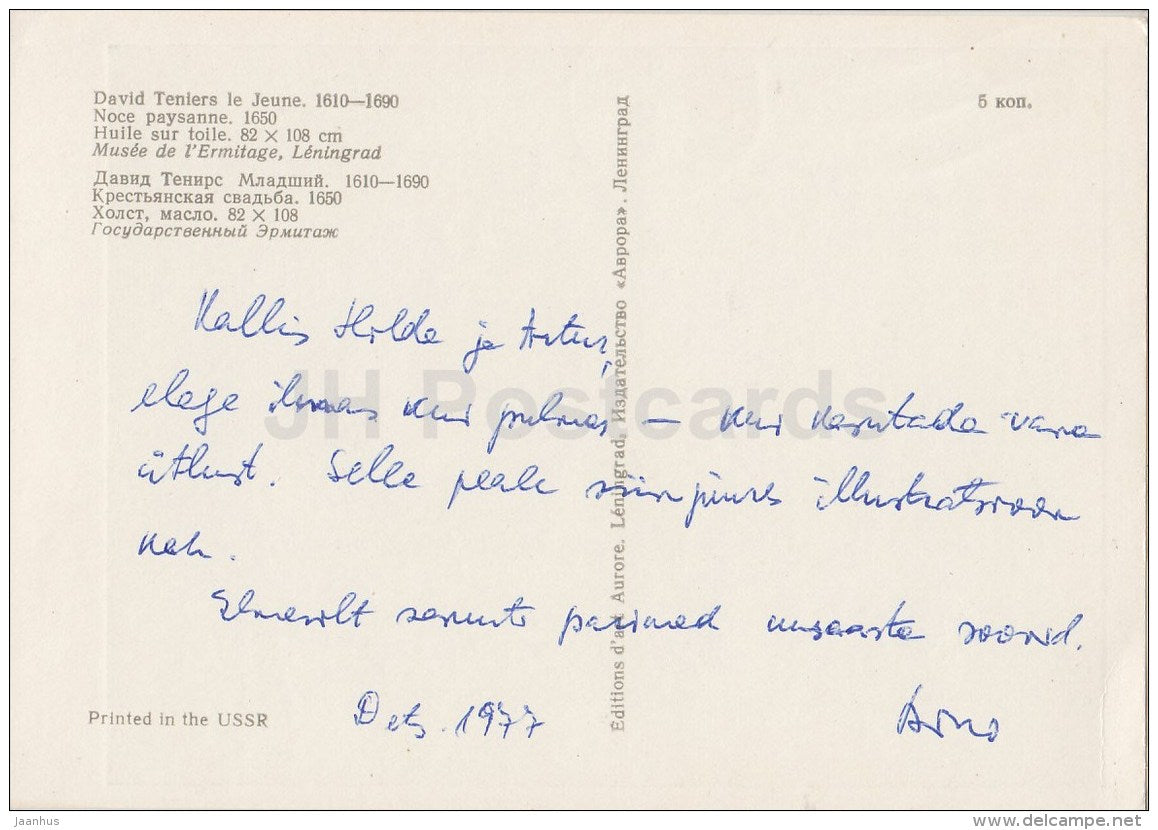 David Teniers le Jeune. 1610—1690
Noce paysanne. 1650
Huile sur toile. 82 × 108 cm
Musée de l'Ermitage, Léningrad
Давид Тенирс Младший. 1610—1690
Крестьянская свадьба. 1650
Холст, масло. 82 × 108
Государственный Эрмитаж
5 коп.
Editions d'art Aurore. Léningrad. Издательство «Аврора». Ленинград
Kallis Hilda ja Artur,
elage ilmas kui pulmas — kui kasutada vana
ütlust. Selle peale siinjuures illustratsioon
ka.
Elmesilt samuti parimad uusaasta soovid.
Dets. 1977
Arno
Printed in the USSR
JH Postcards
Jaanhus
www.delcampe.net